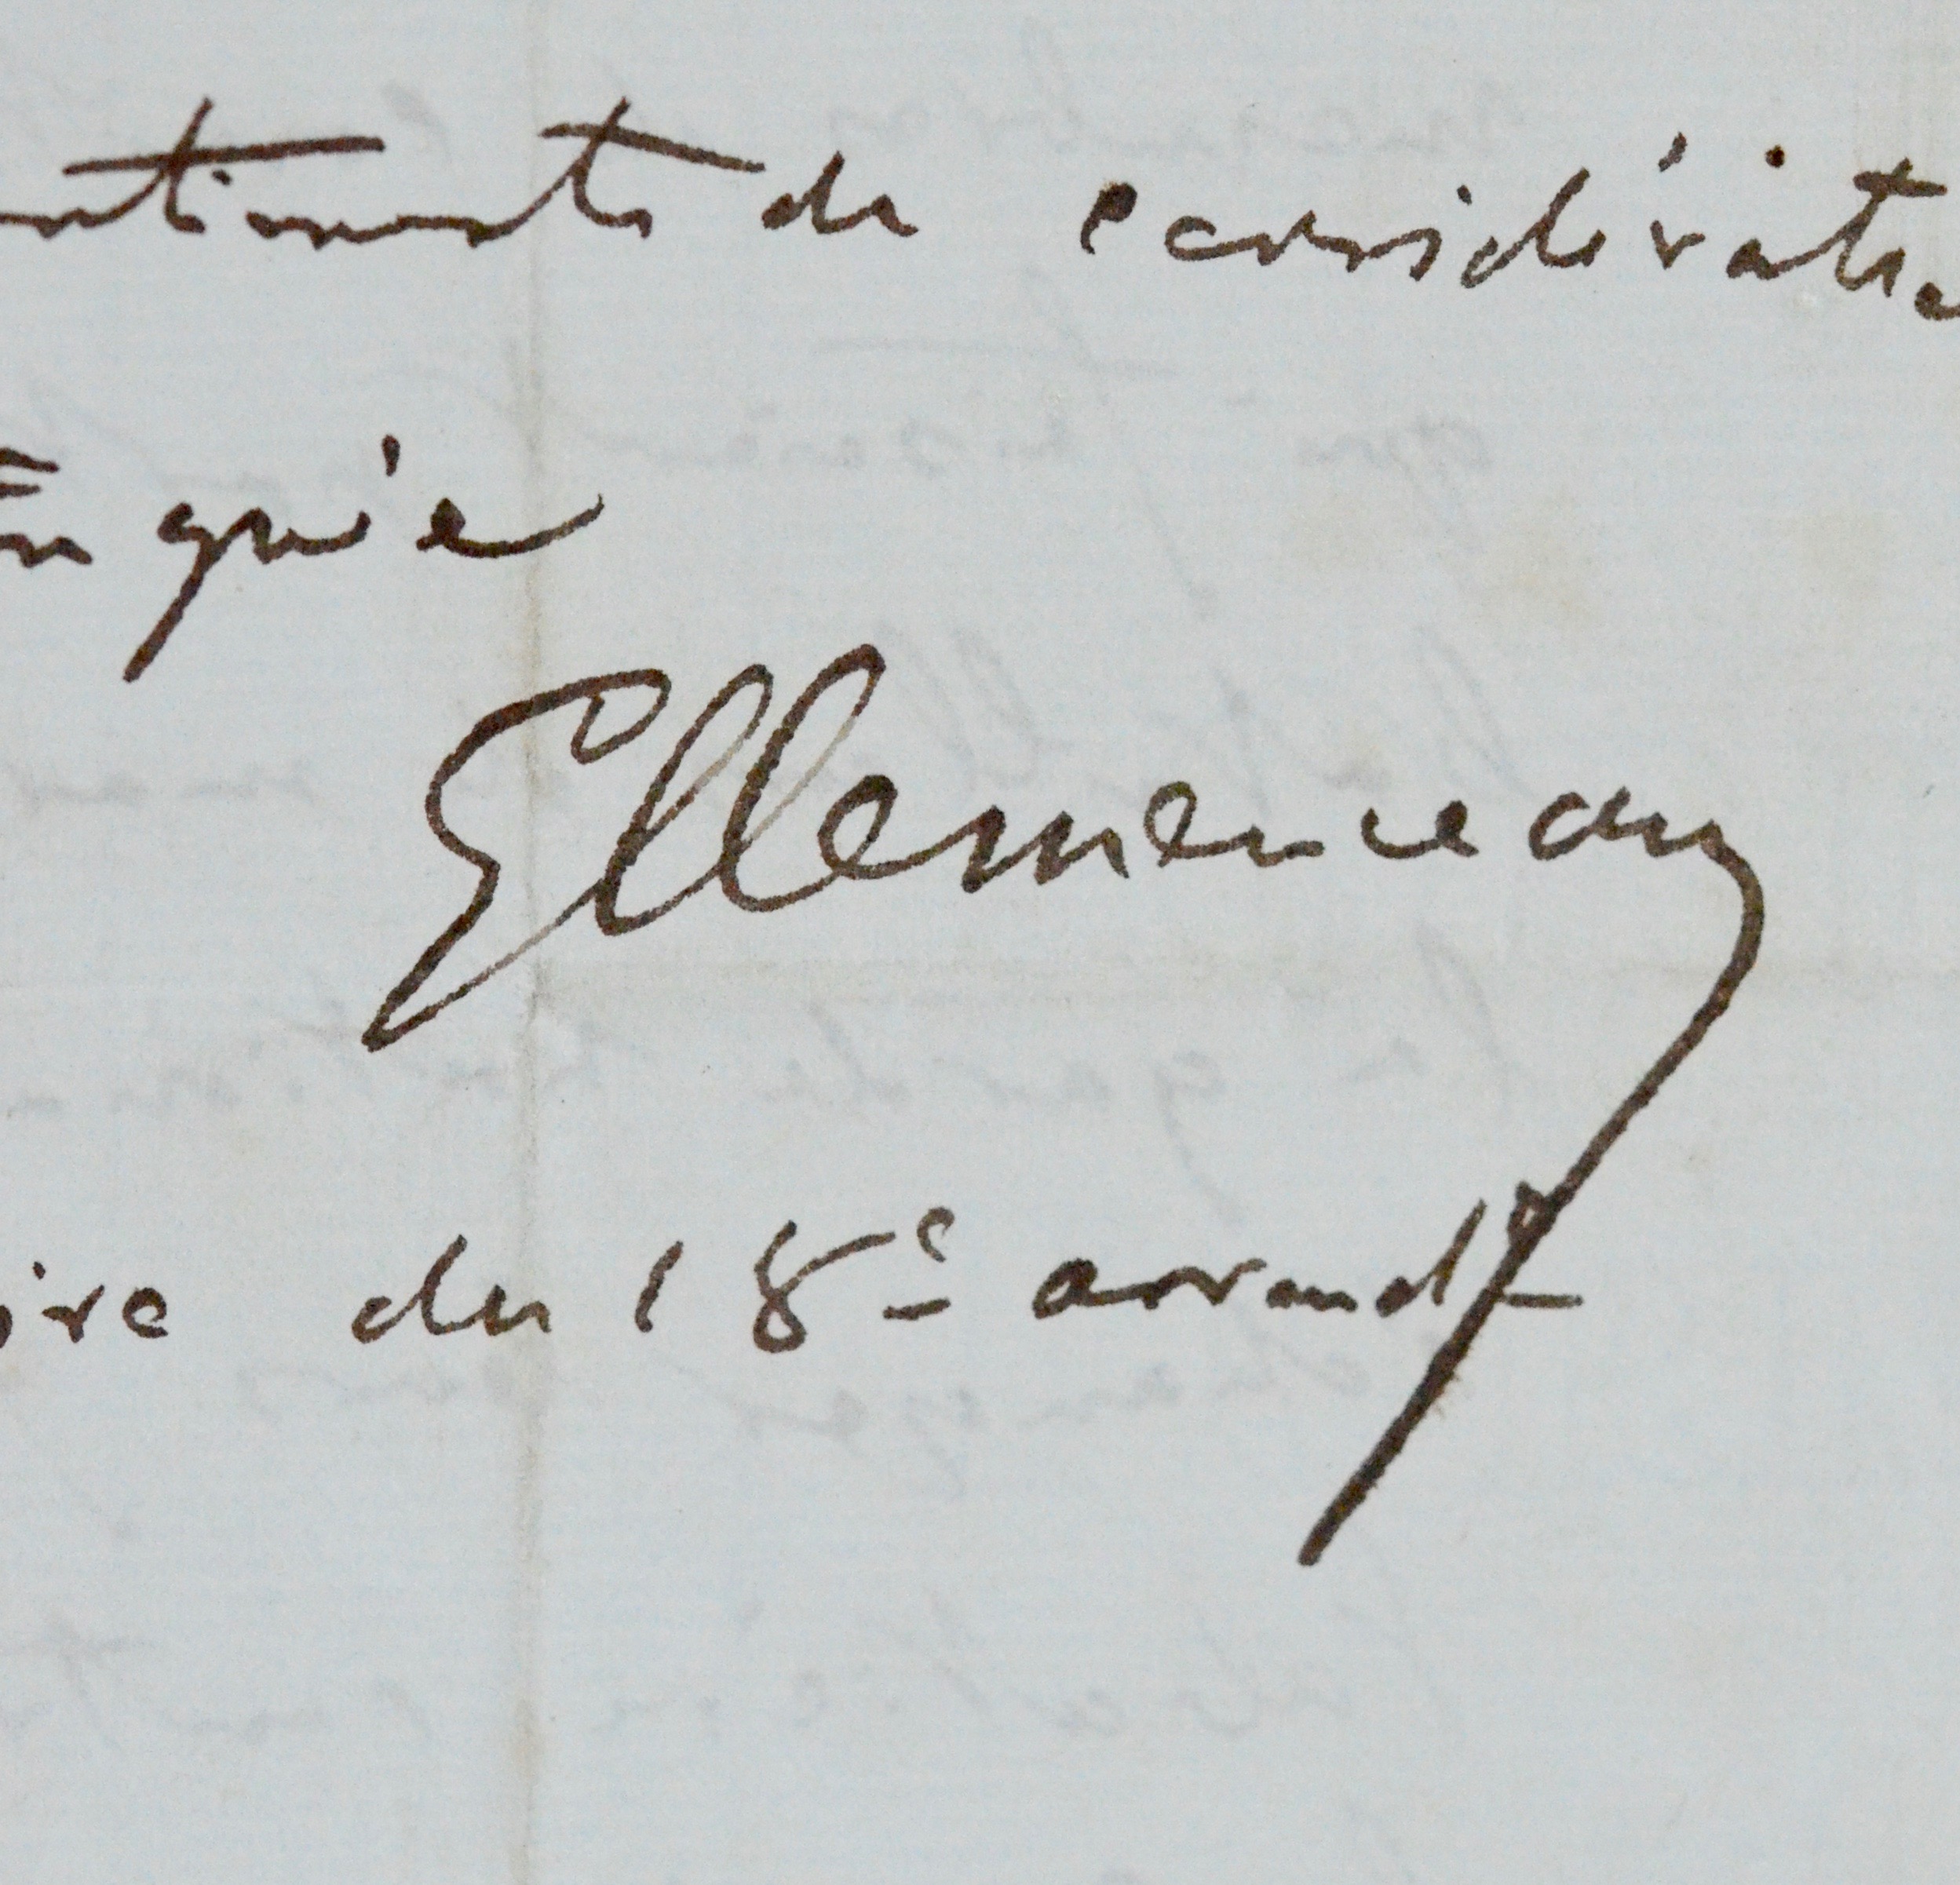 ntiments de considératio
inguée
GClemenceau
ire du 18e arrondt